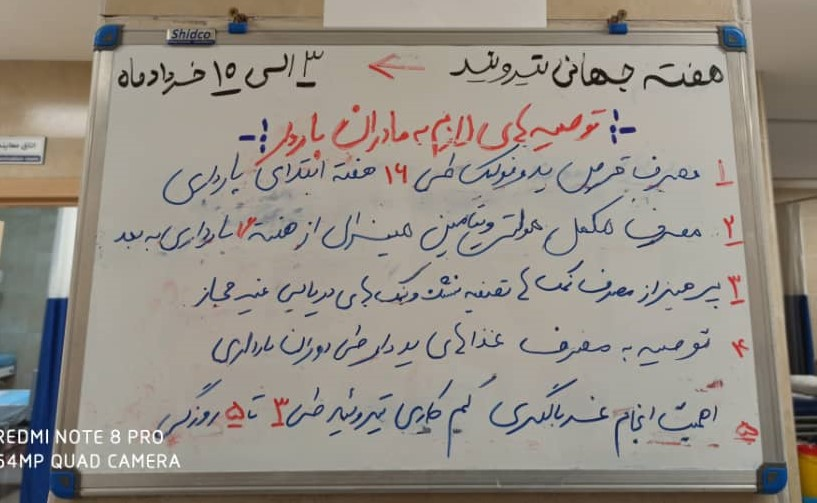 Shidco
هفته جهانی تیروئید ← ۳ الی ۱۵ خردادماه
توصیه های لازم به مادران باردار
۱ مصرف قرص یدوفولیک طی ۱۶ هفته ابتدای بارداری
۲ مصرف مکمل مولتی ویتامین مینرال از هفته بارداری به بعد
۳ پرهیز از مصرف نمک ها تصفیه نشده و نمک های دریایی غیر مجاز
۴ توصیه به مصرف غذاهای ید دار طی دوران بارداری
۵ اهمیت انجام غربالگری کم کاری تیروئید طی ۳ تا ۵ روزگی
اتاق معاینه
REDMI NOTE 8 PRO
64MP QUAD CAMERA